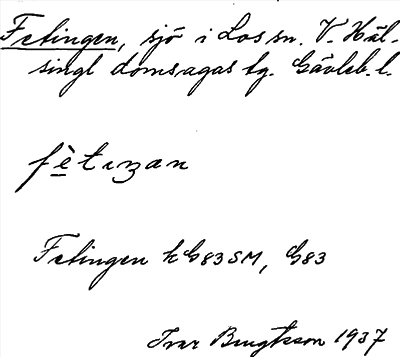 Fetingen, sjö i Los sn. V. Häl-
singl domsagas tg. Gävleb. l.
fètiƞan
Fetingen k G83SM, G83
Ivar Bengtsson 1937